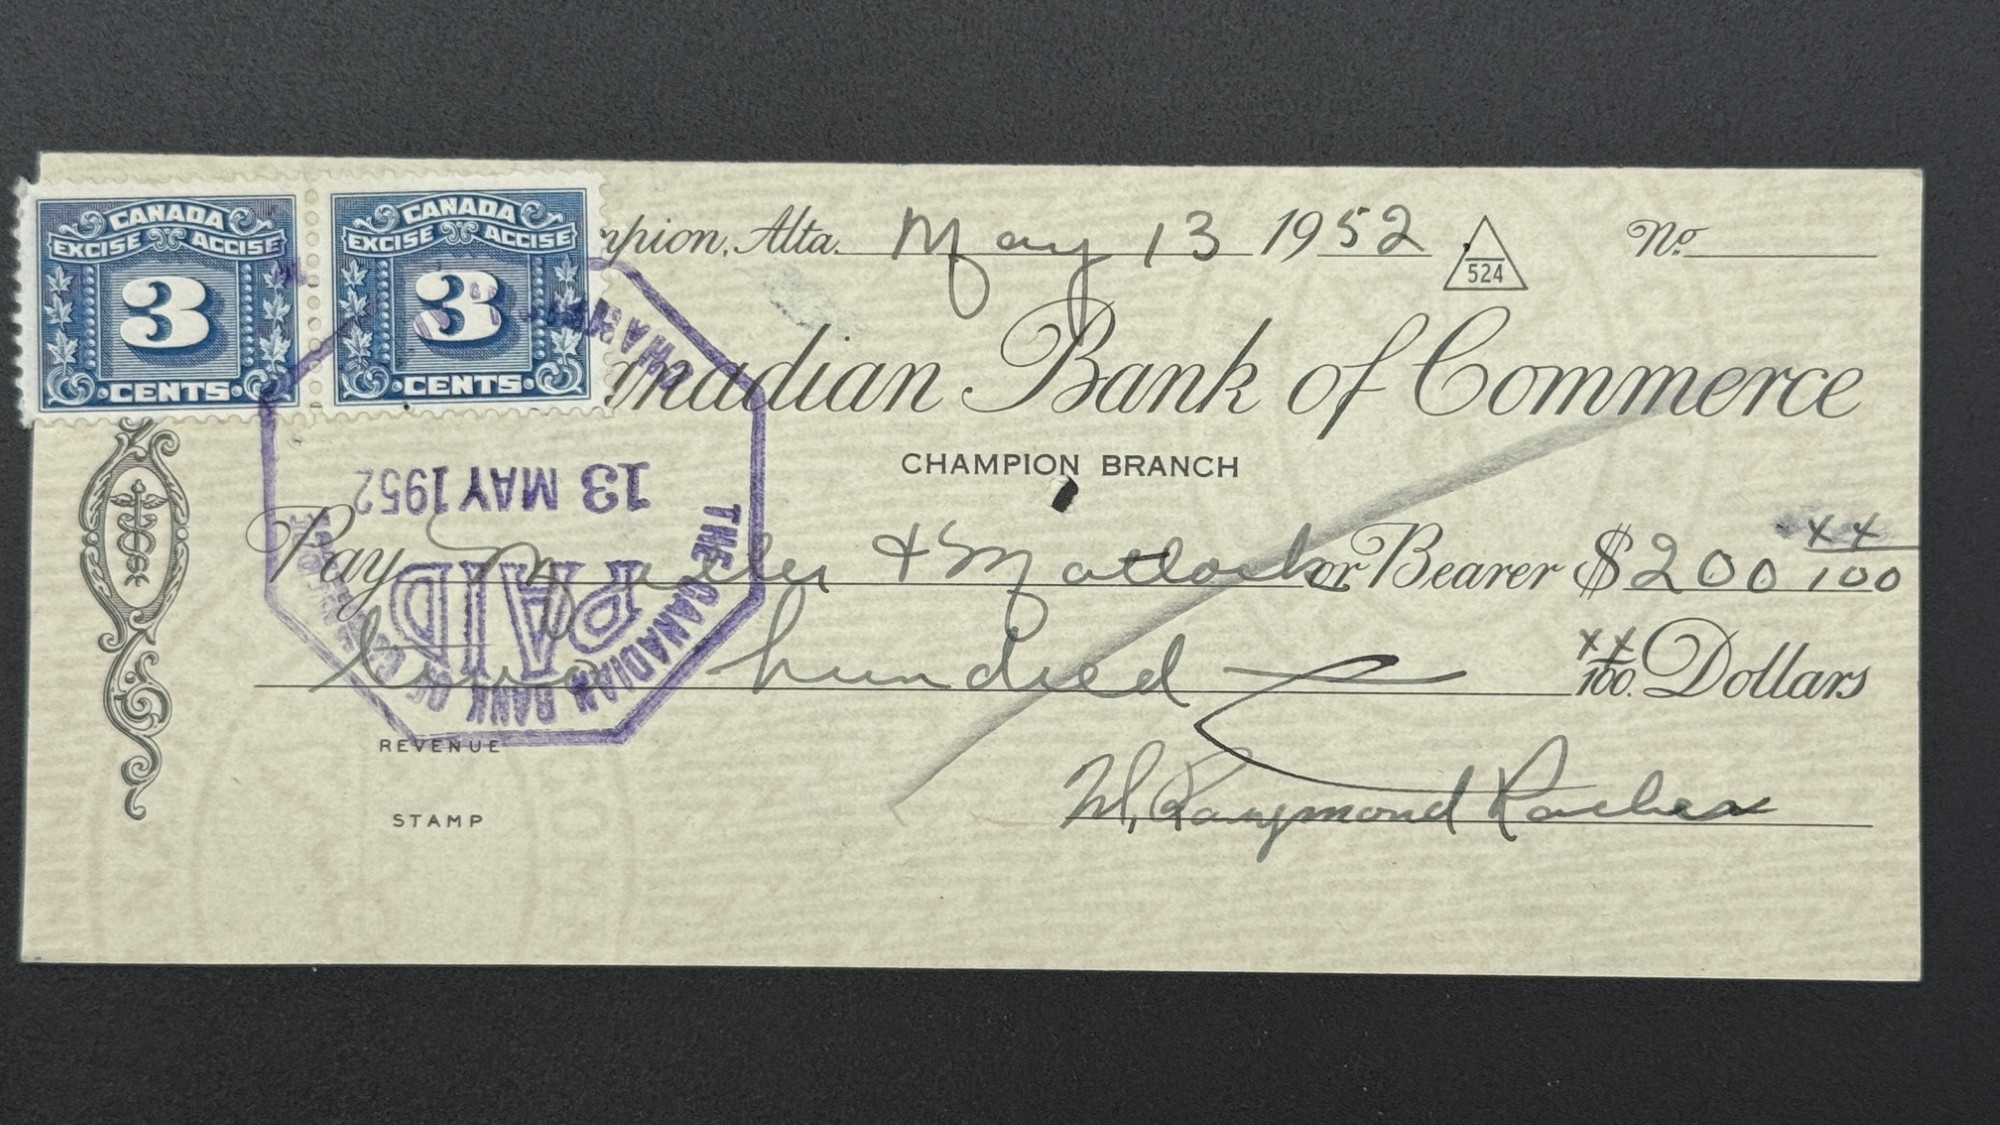 CANADA CANADA
EXCISE ACCISE EXCISE ACCISE
3 3
CENTS CENTS
pion, Alta. May 13 1952 524 No.
anadian Bank of Commerce
CHAMPION BRANCH
Pay & Matlock or Bearer $200 xx/100
two hundred xx/100 Dollars
REVENUE
STAMP
W. Raymond
THE CANADIAN BANK OF
PAID
13 MAY 1952
CHAMPION